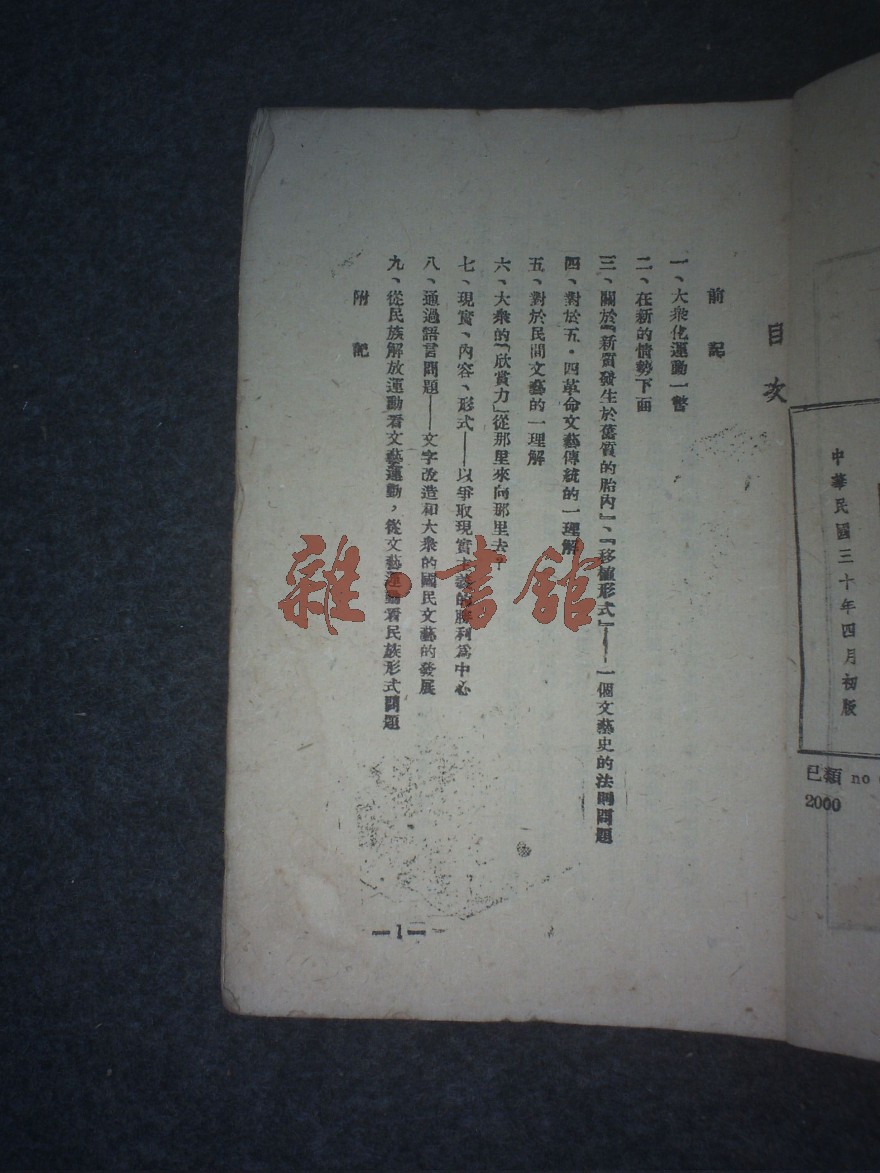 目次
前記
一、大衆化運動一瞥
二、在新的情勢下面
三、關於「新質發生於舊質的胎內」、「移植形式」——一個文藝史的法則問題
四、對於五·四革命文藝傳統的一理解
五、對於民間文藝的一理解
六、大衆的「欣賞力」從那里來向那里去
七、現實、內容、形式——以爭取現實主義的勝利爲中心
八、通過語言問題——文字改造和大衆的國民文藝的發展
九、從民族解放運動看文藝運動，從文藝運動看民族形式問題
附記
—1—
中華民國三十年四月初版
已類 no
2000
雜·書館